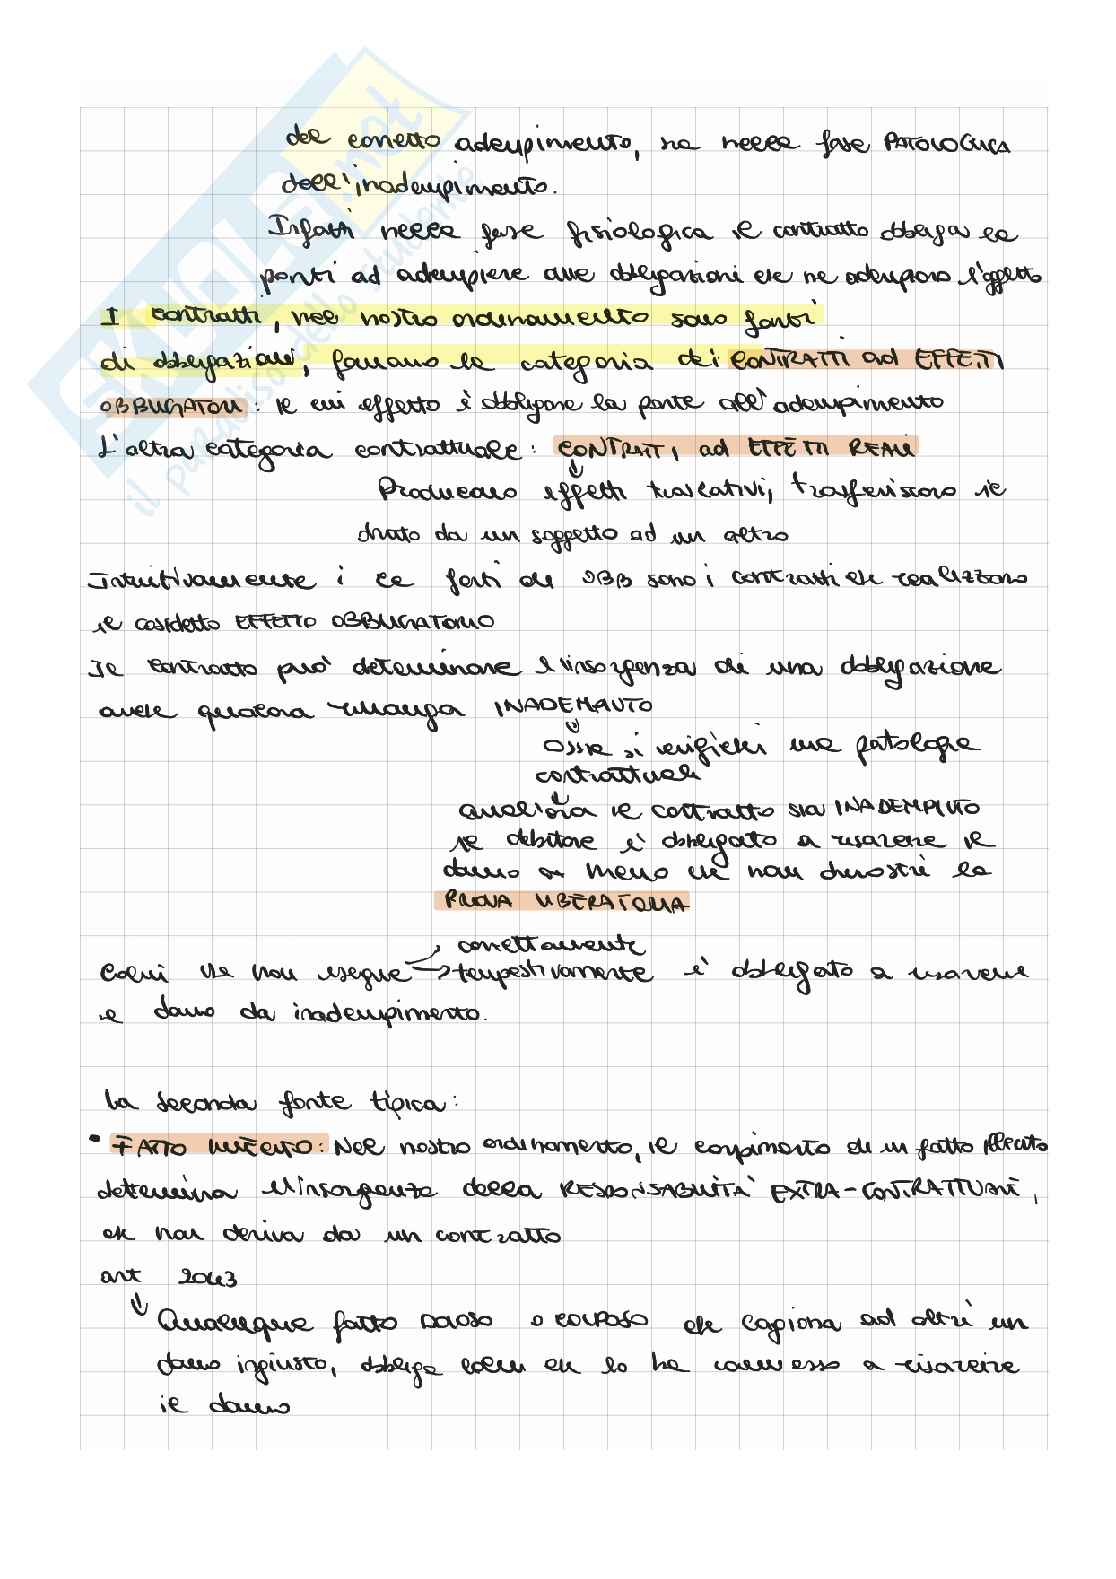 del corretto adempimento, ma nella fase PATOLOGICA
dell'inadempimento.
Infatti nella fase fisiologica il contratto obbliga le
parti ad adempiere alle obbligazioni che ne l'oggetto
I contratti, nel nostro ordinamento sono fonti
di obbligazioni, formano la categoria dei CONTRATTI ad EFFETTI
OBBLIGATORI: il cui effetto è obbligare la parte all'adempimento
L'altra categoria contrattuale: CONTRATTI ad EFFETTI REALI
Producono effetti traslativi, trasferiscono il
diritto da un soggetto ad un altro
Intuitivamente i le fonti di OBB sono i contratti che realizzano
il cosidetto EFFETTO OBBLIGATORIO
Il contratto può determinare l'insorgenza di una obbligazione
anche qualora rimanga INADEMPIUTO
Ossia si verifichi una patologia
contrattuale
Qualora il contratto sia INADEMPIUTO
il debitore è obbligato a risarcire il
danno a meno che non dimostri la
PROVA LIBERATORIA
correttamente
Colui che non esegue tempestivamente è obbligato a risarcire
il danno da inadempimento.
La seconda fonte tipica:
• FATTO ILLECITO: Nel nostro ordinamento, il compimento di un fatto illecito
determina l'insorgenza della RESPONSABILITÀ EXTRA-CONTRATTUALE,
che non deriva da un contratto
art 2043
Qualunque fatto DOLOSO o COLPOSO che cagiona ad altri un
danno ingiusto, obbliga colui che lo ha commesso a risarcire
il danno
SKUOLA.net
il paradiso dello studente